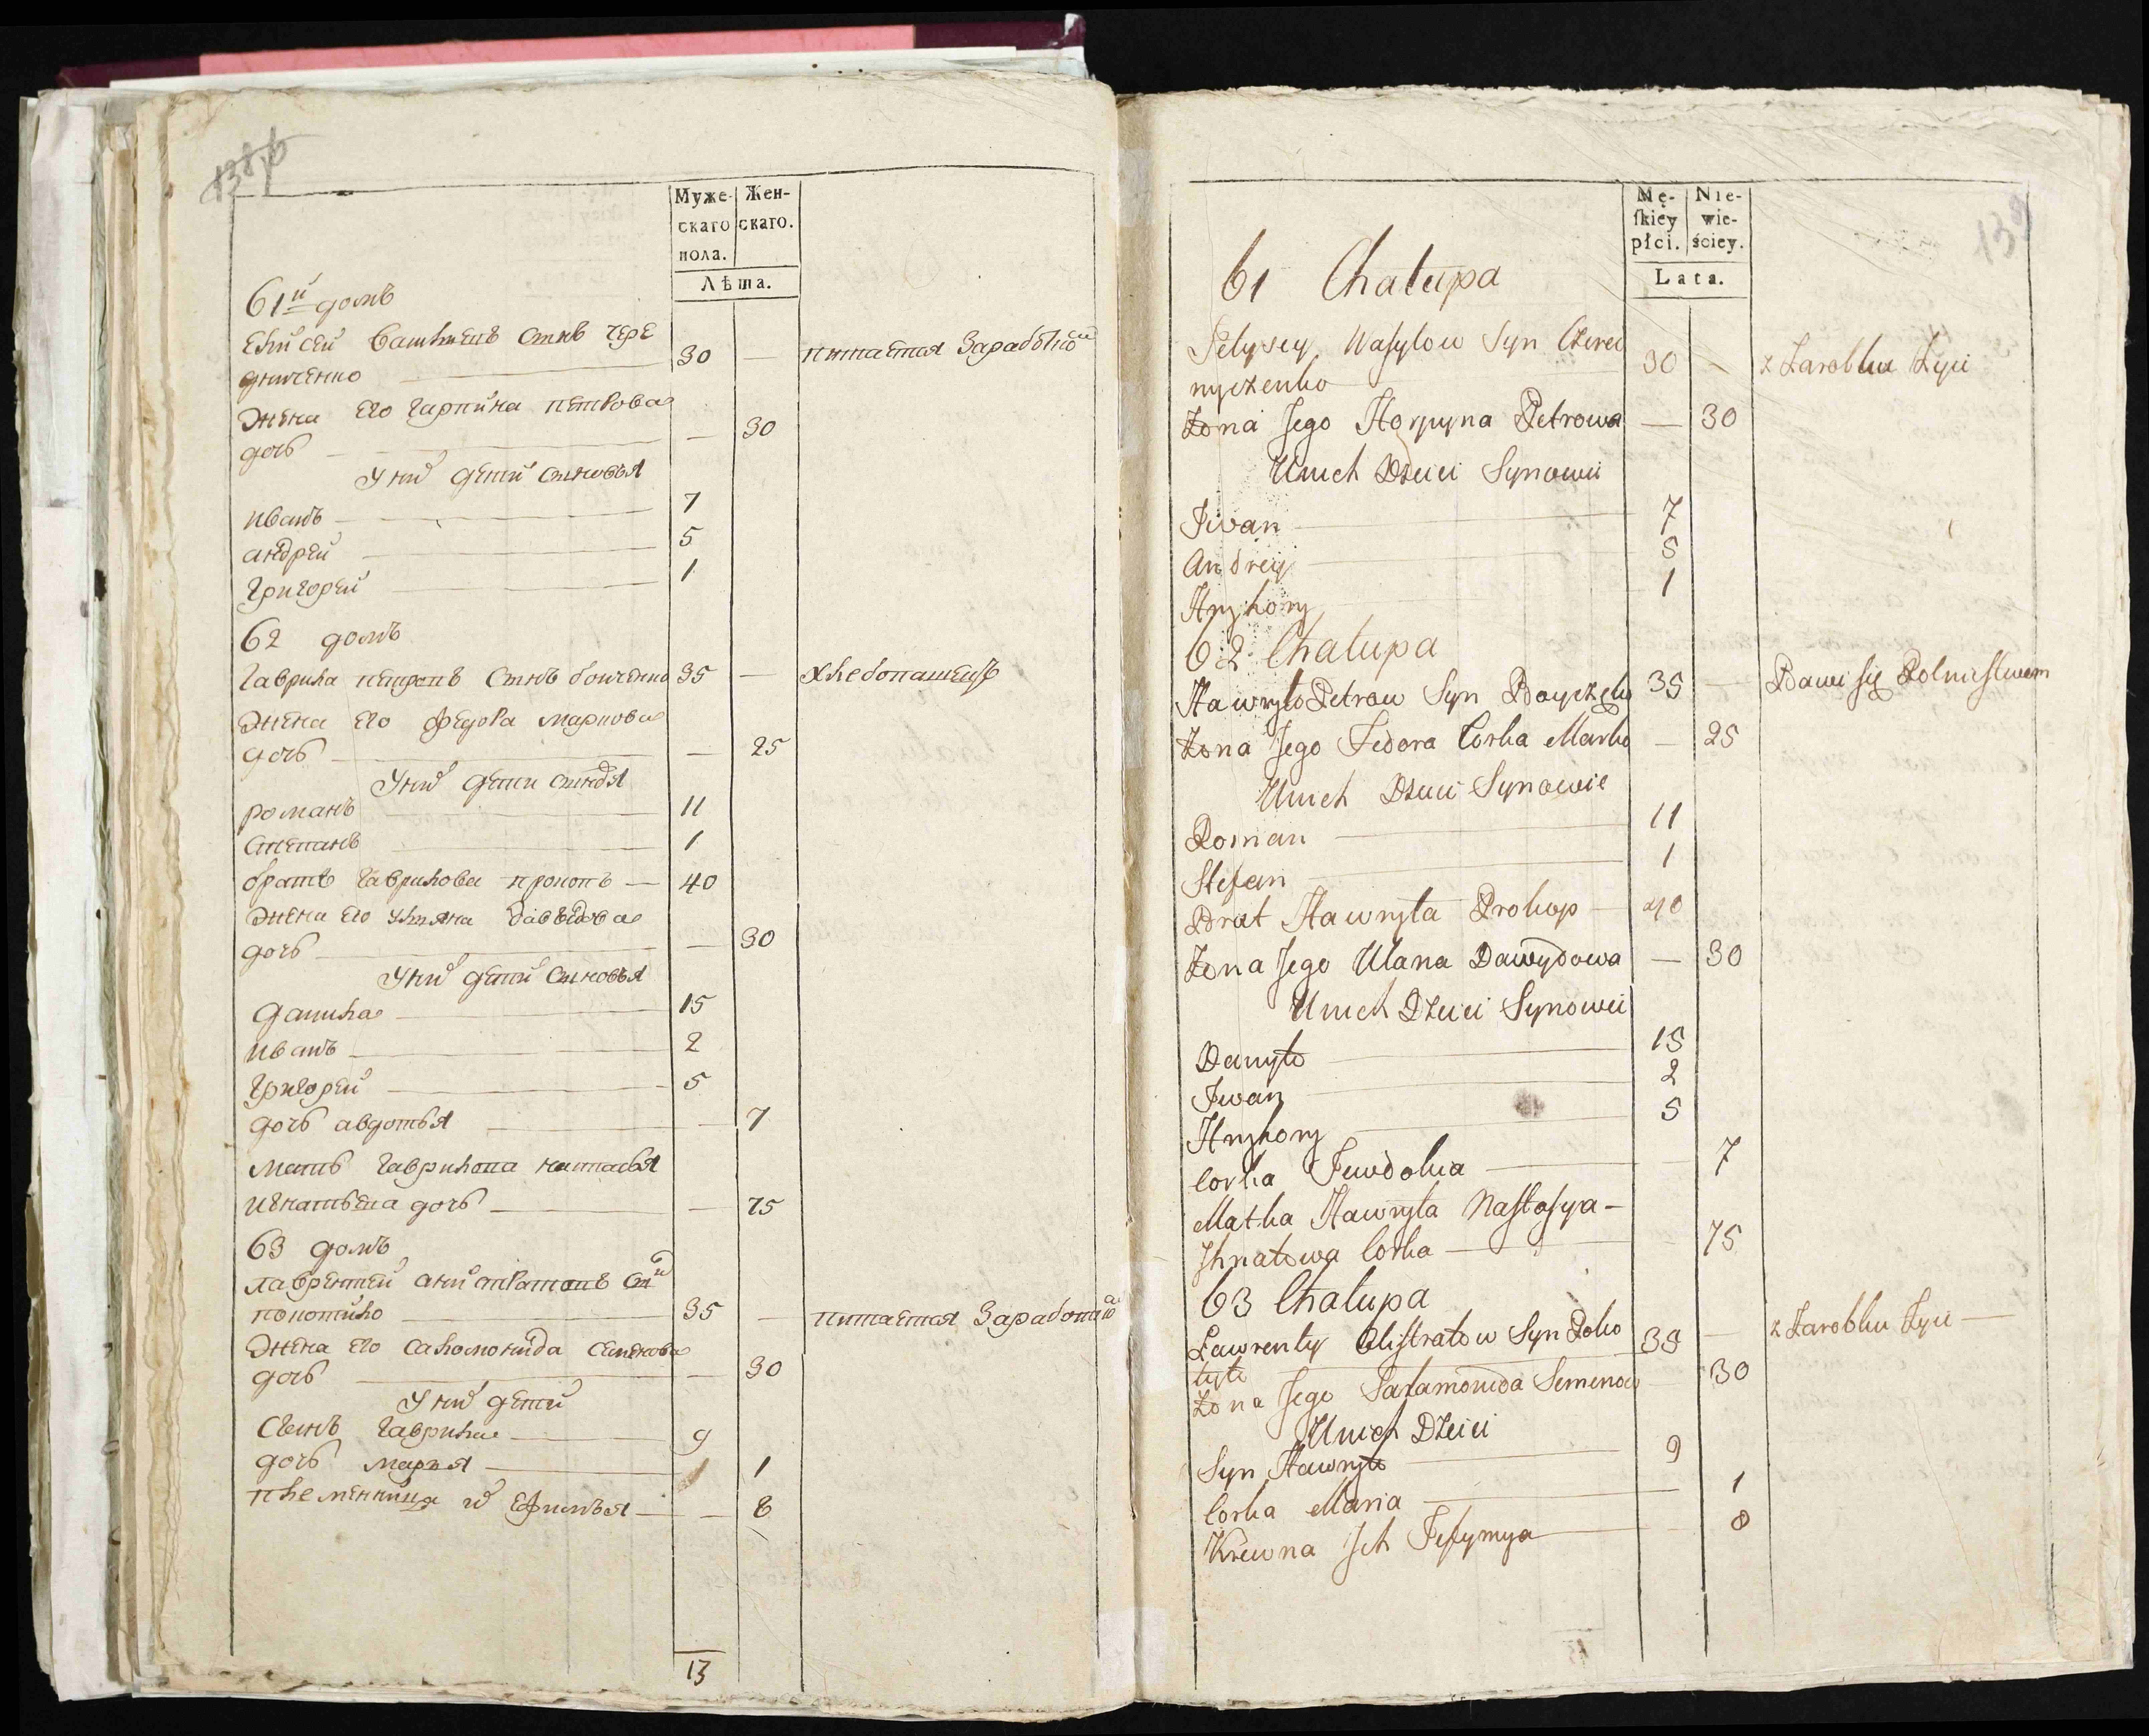 138 об
Муже-
скаго
пола.
Жен-
скаго.
Лѣта.
61й домъ
Елисей василиевъ сынъ чере
дниченко 30 — питается Заработкой
Жена его гарпина петрова
дочь — 30
У них дети сыновья
иванъ 7
андрей 5
григорей 1
62 домъ
гаврила петровъ сынъ бойченко 35 — хлебопашецъ
Жена его федора маркова
дочь — 25
У них дети синовя
романъ 11
степанъ 1
братъ гаврилова прокопъ — 40
Жена его уляна давыдова
дочь — 30
У них дети сыновья
данила 15
иванъ 2
григорей 5
дочь авдотья — 7
мать гаврилова настасья
игнатьева дочь — 75
63 домъ
лаврентей анистратовъ сын
покотило 35 — питается Заработкой
Жена его саломонида семенова
дочь — 30
У них дети
Сынъ гаврила 9
дочь марья 1
племенница их Ефимья — 8
13
139
Mę-
ſkiey
płci.
Nie-
wie-
ściey.
Lata.
61 Chałupa
Jełysey Wasylow Syn Czered
nyczenko 30 — z Zarobku Żyie
Żona Jego Horpyna Petrowa — 30
Unich Dzieci Synowie
Jwan 7
Andrey 5
Hryhory 1
62 Chałupa
Hawryło Petrow Syn Boyczeko 35 — Bawi się Rolnictwem
Żona Jego Fedora Corka Marko — 25
Unich Dzieci Synowie
Roman 11
Stefan 1
Brat Hawryła Prokop — 40
Żona Jego Ulana Dawydowa — 30
Unich Dzieci Synowie
Danyło 15
Jwan 2
Hryhory 5
Corka Jewdokia 7
Matka Hawryła Nastasya —
Jhnatowa Corka — 75
63 Chałupa
Ławrenty Alistratow Syn Poko
tyło 35 — z Zarobku Żyie —
Żona Jego Sałamonida Semenow 30
Unich Dzieci
Syn Hawryło 9
Corka Maria 1
Krewna Jch Jefymya 8